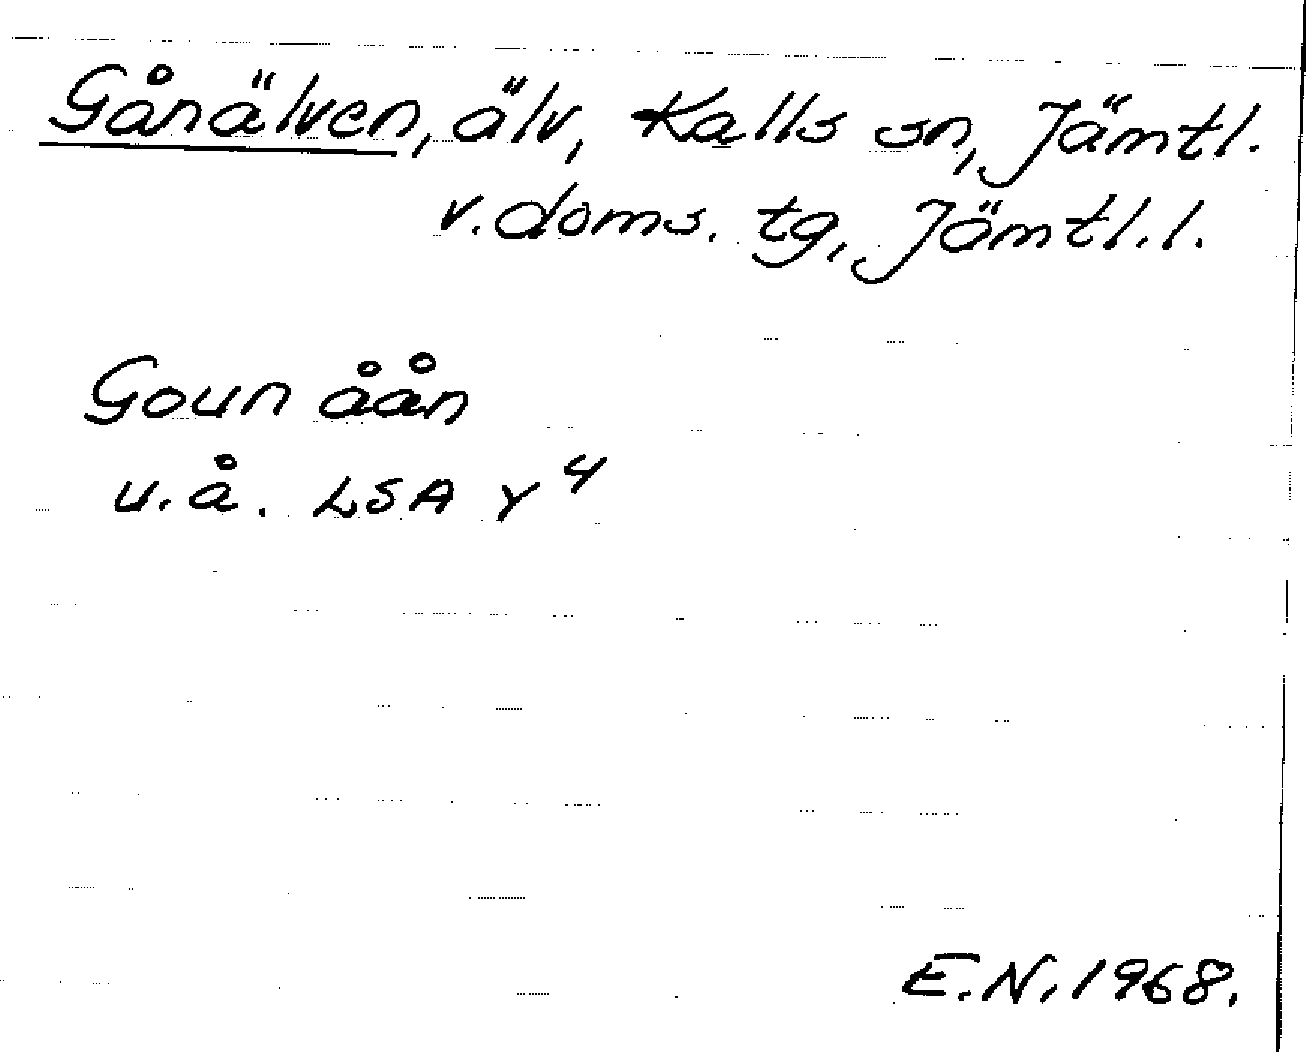 Gånälven, älv, Kalls sn, Jämtl.
v. doms. tg, Jämtl. l.
Goun åån
u.å. LSA Y 4
E.N. 1968.